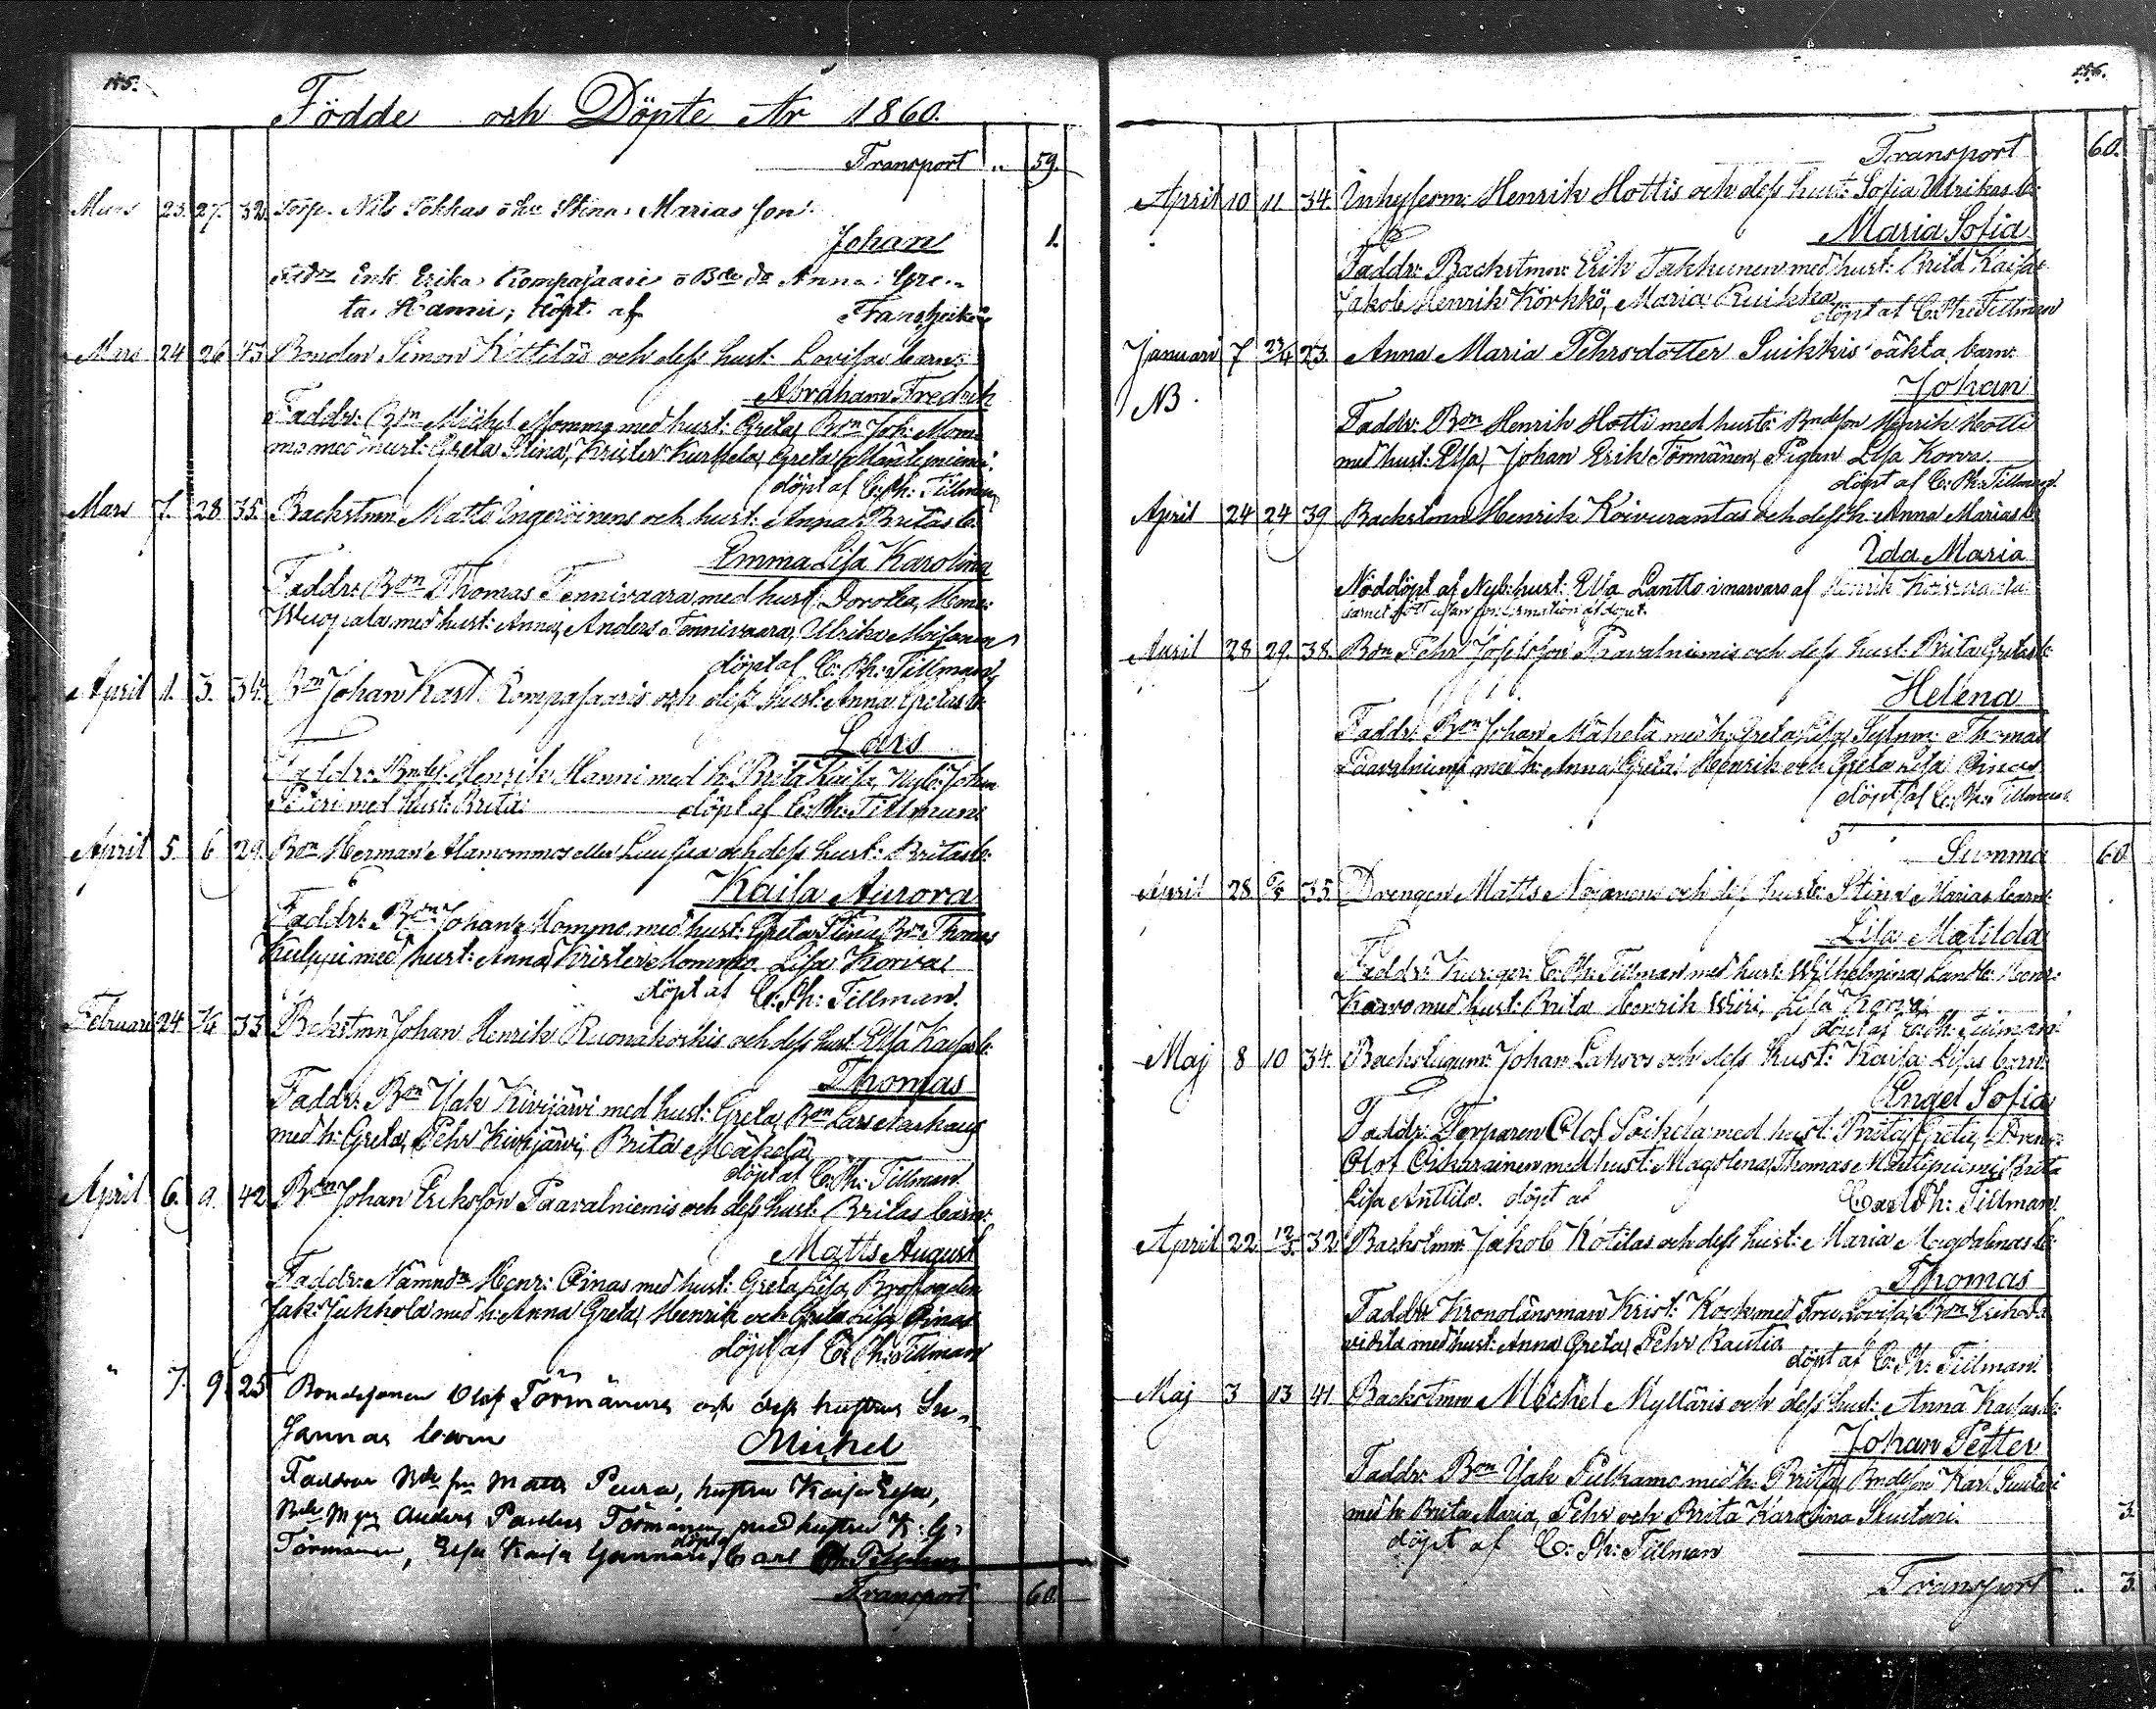 155.
Födde och Döpte År 1860.
Transport .. 59.
Mars 23. 27. 32. Torp. Nils Tokkas o hu Stina Marias son
Johan 1.
Enk Erika Kompasaari o Anna Gre-
ta Hanni; döpt af
Mars 24 26 43 Bonden Simon Kottilas och dess hust: Lovisas barn:
Abraham Fredrik
Faddr: Bon Michel Mommo med hust: Greta, Bon Joh: Mom-
mo med hust: Greta Stina, Krister Kurkela, Greta Mäntyniemi.
döpt af C: Ph: Tillman
Mars 7. 28 35. Backstmn Matts Ingeröinens och hust: Anna Britas b:
Emma Lisa Karolina
Faddr: Bon Thomas Tennivaara med hust: Dorotea, Henr:
Wuopala med hust: Anna, Anders Tennivaara, Ulrika
döpt af C: Ph: Tillman,
April 1. 3. 34. Bon Johan Karl Kompasaaris och dess hust: Anna Gretas b:
Lars
Faddr: Bndes. Henrik Hanni med h: Brita Kaisa, Nyb: Johan
med hust: Brita döpt af C: Ph: Tillman
April 5. 6 29. Bon Herman Alamommos eller och dess hust: Britas b:
Kaisa Aurora
Faddr: Bon Johan Mommo med hust: Greta Stina, Bon Thomas
Kulppi med hust: Anna, Krister Mommo, Lisa Korva
döpt af C: Ph: Tillman.
Februari 24 33 Bckstmn Johan Henrik Ruonakoskis och dess hust: Elsa Kaisas b:
Thomas
Faddr: Bon Isak Kivijärvi med hust: Greta, Bon Lars Markaus
med h: Greta, Pehr Kivijärvi, Brita Mäkelä
döpt af C: Ph: Tillman.
April 6. 9. 42 Bon Johan Eriksson Paavalniemis och dess hust: Britas barn:
Matts August
Faddr: Nämndn Henr: Oinas med hust: Greta Lisa,
Jak: Jukkola med h: Anna Greta, Henrik och Greta Lisa Oinas
döpt af C: Ph: Tillman
" 7. 9. 25 Bondesonen Olof Törmänens och dess hustrus Su-
sannas barn Michel
Faddrar son Matts Peura, hustru Kaisa Elsa,
Anders Törmänen med hustru K: G:
Törmänen, Elsa Kaisa döpt af Carl Ph: Tillman
Transport 60.
156.
Transport 60.
April 10 11 34. Inhysesm: Henrik Hottis och dess hust: Sofia Ulrikas b:
Maria Sofia
Faddr: Backstmn: Erik Takkunen med hust: Brita Kaisa
Jakob Henrik Körkkö, Maria Kuikka
döpt af C: Ph: Tillman
Januari 7 22/4 23. Anna Maria Pehrsdotter Suikkis oäkta barn:
NB. Johan
Faddr: Bon Henrik Hotti med hust: Bndeson Henrik Hotti
med hust: Elsa, Johan Erik Törmänen, Pigan Lisa Korva.
döpt af C: Ph: Tillman.
April 24 24 39 Backstmn Henrik Koivurantas och dess h: Anna Marias b
Ida Maria
Nöddöpt af Nyb: hust: Elsa Lantto i narvaro af Henrik Koivuranta
barnet dött utan confirmation af doput.
April 28 29. 38. Bon Pehr Josefsson Paavalniemis och dess hust: Brita Gretas b:
Helena
Faddr: Bon Johan Mäkelä med h: Greta Lisa, Sytnm: Thomas
Paavalniemi med h: Anna Greta, Henrik och Greta Lisa Oinas
döpt af C: Ph: Tillman
5
Summa 60
April 28 35 Drengen Matts Nojanens och dess hust: Stina Marias barn:
Lisa Matilda
Faddr: C: Ph: Tillman med hust: Wilhelmina, Lantb: Henr:
Karvo med hust: Brita Henrik Wiiri, Lisa Korva
döpt af C: Ph: Tillman.
Maj 8 10 34. Backstugum: Johan Lahvos och dess hust: Kaisa Lisas barn:
Engel Sofia
Faddr: Torparen Olof Soikela med hust: Brita Greta, Dreng:
Olof Oikarainen med hust: Magdlena, Thomas Mäntyniemi, Brita
Lisa Anttila. döpt af Carl Ph: Tillman.
April 22 12/5. 32 Backstmn: Jakob Kotilas och dess hust: Maria Magdalenas b:
Thomas
Faddr: Kronolänsman Krist: Kock med Fru Lovisa, Bon Erik
med hust: Anna Greta, Pehr Rautia
döpt af C: Ph: Tillman.
Maj 3 13 41 Backstmn Michel Mylläris och dess hust: Anna Kaisas b:
Johan Petter
Faddr: Bon Isak Pulkamo med h: Brita, Bndeson Karl
med h: Brita Maria, Pehr och Brita Karolina
döpt af C: Ph: Tillman 3.
Transport .. 3.